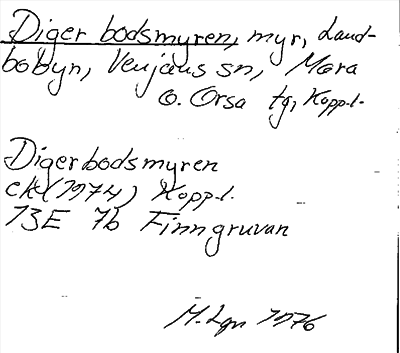 Digerbodsmyren, myr, Land-
bobyn, Venjans sn, Mora
o. Orsa tg, Kopp.l.
Digerbodsmyren
ek (1974) Kopp.l.
13E 7b Finngruvan
M. Lgn 1976